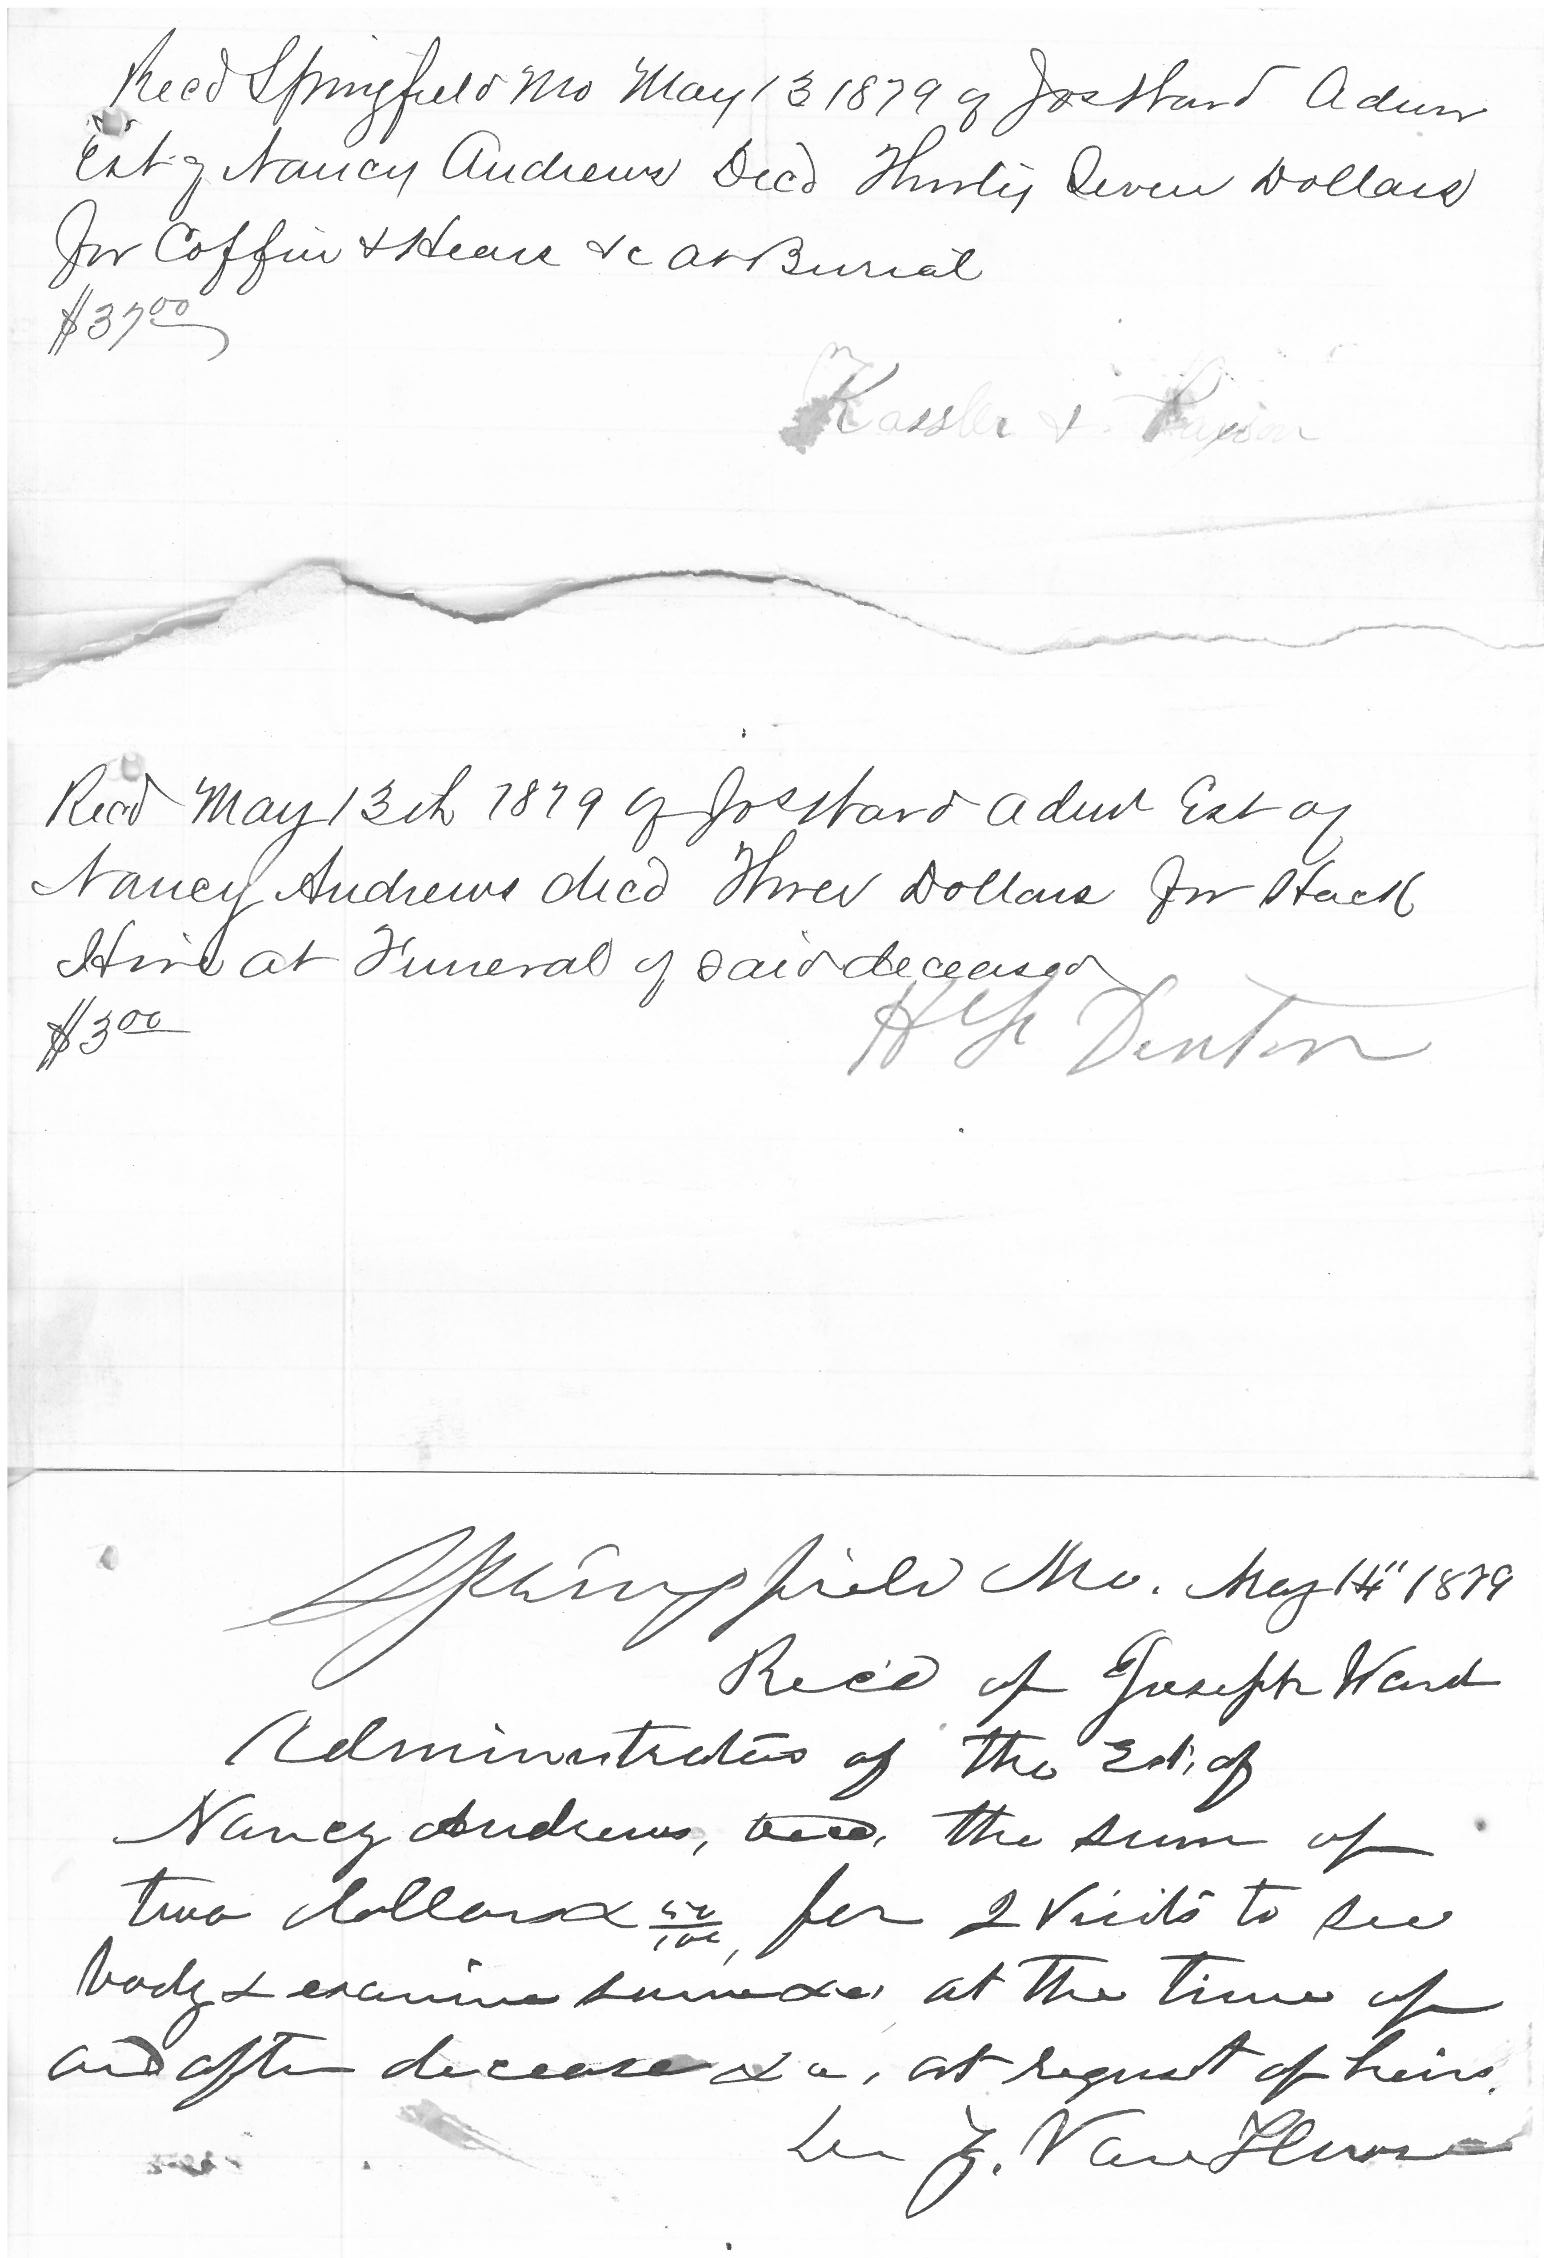 Recd Springfield Mo May 13 1879 of Jos Ward Admr
Est of Nancy Andrews Decd Thirty Seven Dollars
for Coffin & Hearse &c at Burial
$37 00
Kassler &
Recd May 13th 1879 of Jos Ward Admr Est of
Nancy Andrews decd Three Dollars for Hack
Hire at Funeral of said deceased
$3 00
Denton
Springfield Mo. May 14" 1879
Rec'd of Joseph Ward
Administrator of the Est, of
Nancy Andrews, Decd, the sum of
two dollars & 50/100, for 2 Visits to see
body & examine same &c, at the time of
and after decease &c, at request of heirs.